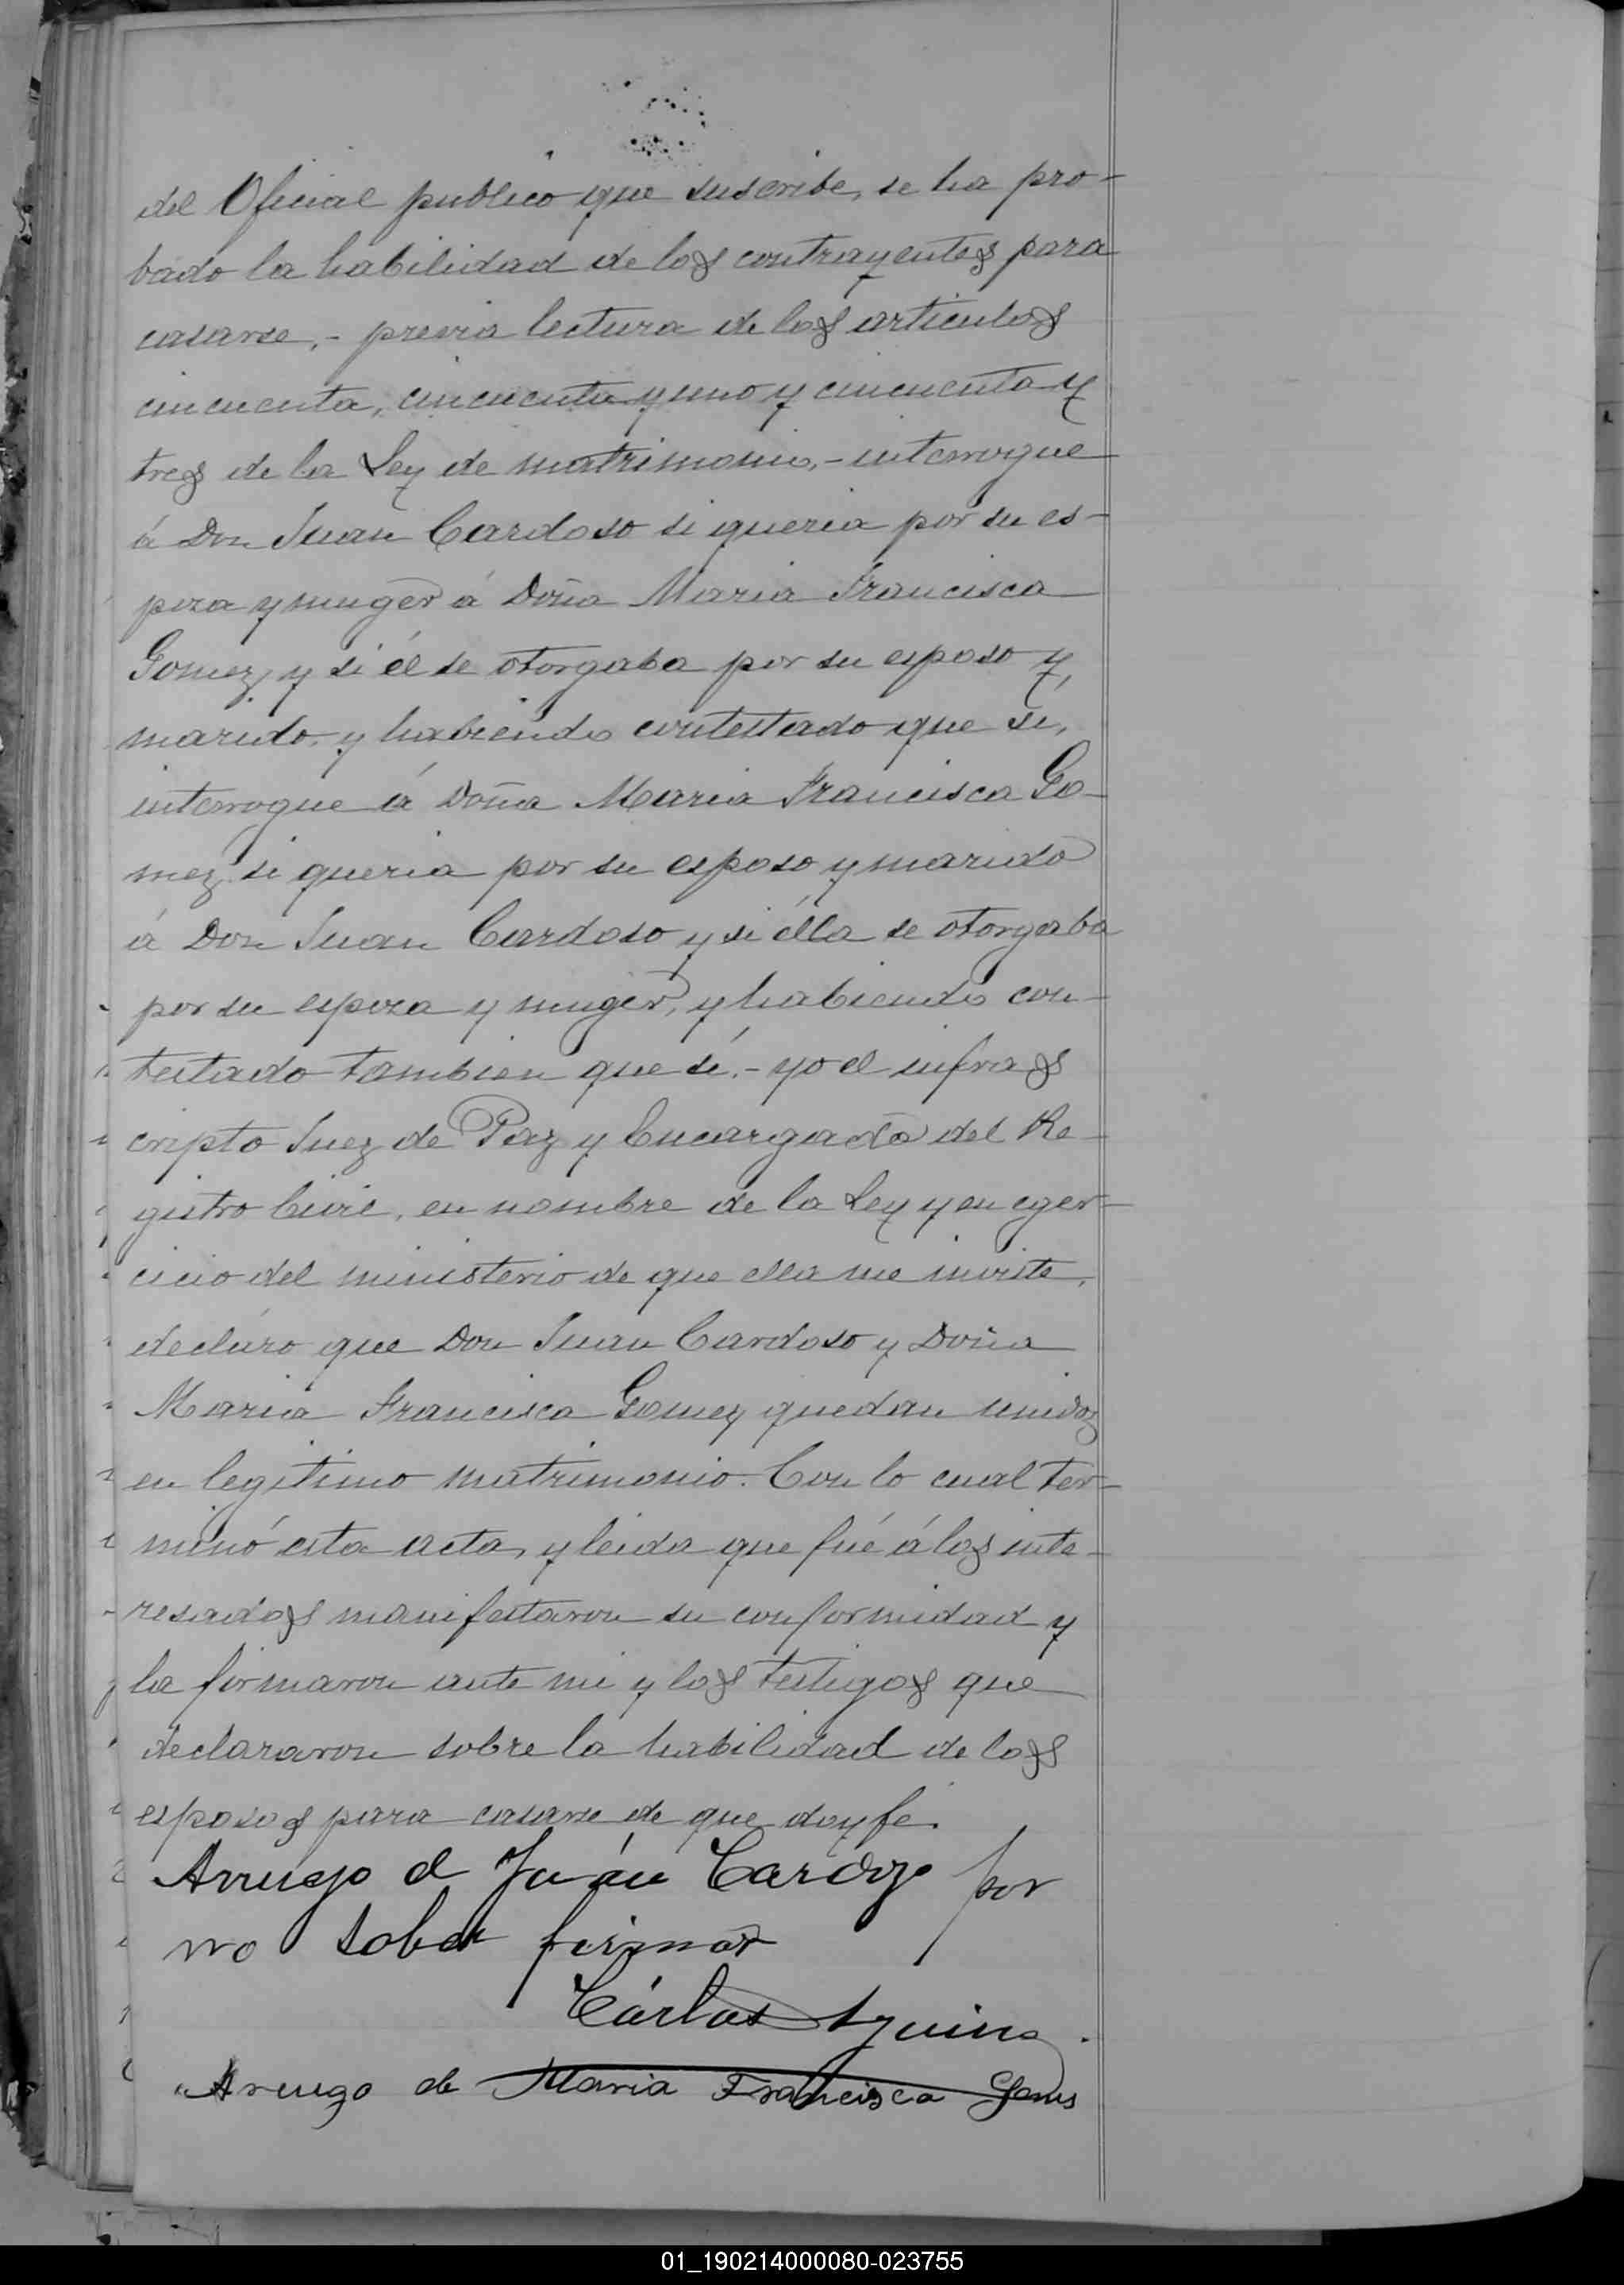 del Oficial publico que suscribe, se ha pro-
bado la habilidad de los contrayentes para
casarse,- previa lectura de los articulos
cincuenta, cincuenta y uno y cincuenta y
tres de la Ley de matrimonio,- interrogue
á Don Juan Cardoso si queria por su es-
poza y muger á Doña Maria Francisca
Gomez, y si él se otorgaba por su esposo y,
marido, y habiendo contestado que si,
interrogue á Doña Maria Francisca Go-
mez si queria por su esposo y marido
á Don Juan Cardoso y si élla se otorgaba
por su espoza y muger, y habiendo con-
testado tambien que sí.- yo el infras
cripto Juez de Paz y Encargado del Re-
gistro Civil, en nombre de la Ley y en eger-
cicio del ministerio de que ella me inviste,
decláro que Don Juan Cardoso y Doña
Maria Francisca Gomez quedan unidos
en legítimo matrimonio. Con lo cual ter-
minó esta acta, y leida que fué á los inte-
resados manifestaron su conformidad y
la firmaron ante mi y los testigos que
declararon sobre la habilidad de los
esposos para casarse de que doy fé.
Arruego d Juán Cardozo por
no saber firmar
Cárlos Aquino
Aruego de Maria Francisca Gomes
01_190214000080-023755